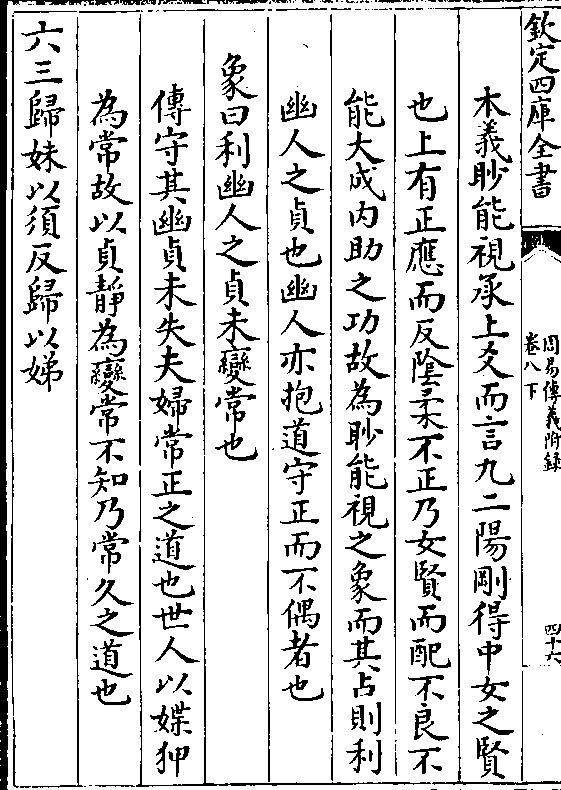 欽定四庫全書
周易傳義附録
卷八下
四十六
本義眇能視承上爻而言九二陽剛得中女之賢
也上有正應而反陰柔不正乃女賢而配不良不
能大成内助之功故為眇能視之象而其占則利
幽人之貞也幽人亦抱道守正而不偶者也
象曰利幽人之貞未變常也
傳守其幽貞未失夫婦常正之道也世人以媟狎
為常故以貞靜為變常不知乃常久之道也
六三歸妹以須反歸以娣